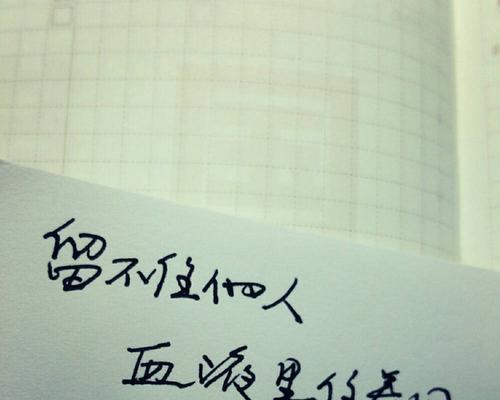 留不住的人
血液里住着